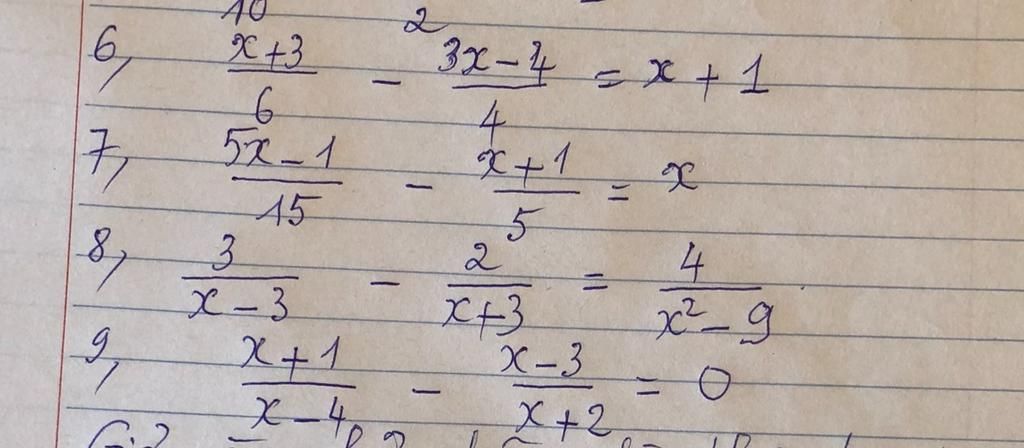 10 2
6, (x+3)/6 - (3x-4)/4 = x + 1
7, (5x-1)/15 - (x+1)/5 = x
8, 3/(x-3) - 2/(x+3) = 4/(x²-9)
9, (x+1)/(x-4) - (x-3)/(x+2) = 0